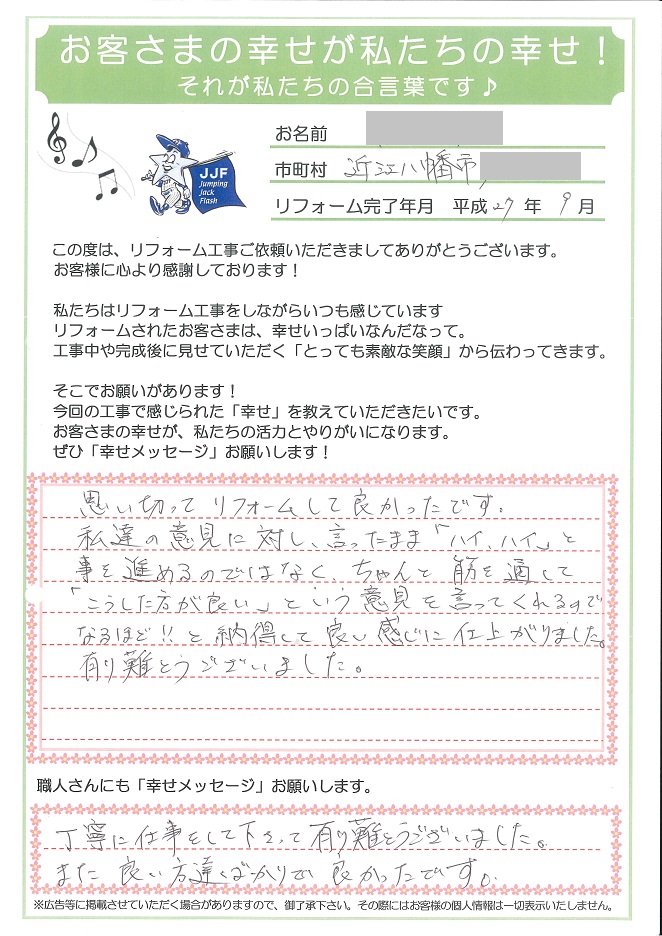 お客さまの幸せが私たちの幸せ！
それが私たちの合言葉です♪
JJF
Jumping
Jack
Flash
お名前
市町村 近江八幡市
リフォーム完了年月 平成27年 9月
この度は、リフォーム工事ご依頼いただきましてありがとうございます。
お客様に心より感謝しております！
私たちはリフォーム工事をしながらいつも感じています
リフォームされたお客さまは、幸せいっぱいなんだなって。
工事中や完成後に見せていただく「とっても素敵な笑顔」から伝わってきます。
そこでお願いがあります！
今回の工事で感じられた「幸せ」を教えていただきたいです。
お客さまの幸せが、私たちの活力とやりがいになります。
ぜひ「幸せメッセージ」お願いします！
思い切ってリフォームして良かったです。
私達の意見に対し、言ったまま「ハイ、ハイ」と
事を進めるのではなく、ちゃんと筋を通して
「こうした方が良い」という意見を言ってくれるので
なるほど!!と納得して良い感じに仕上がりました。
有り難とうございました。
職人さんにも「幸せメッセージ」お願いします。
丁寧に仕事をして下さって有り難とうございました。
また良い方達ばかりで良かったです。
※広告等に掲載させていただく場合がありますので、御了承下さい。その際にはお客様の個人情報は一切表示いたしません。